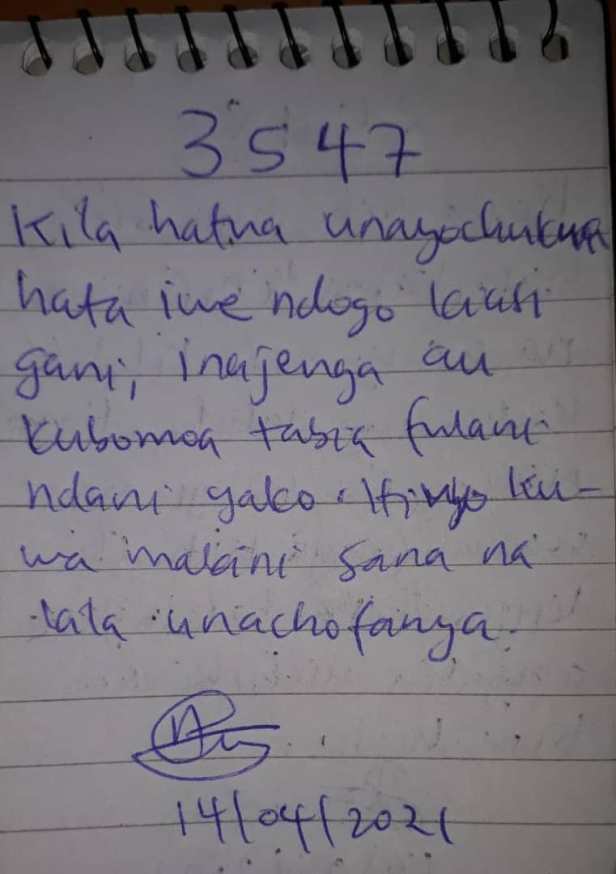 3547
Kila hatua unayochukua
hata iwe ndogo kiasi
gani, inajenga au
kubomoa tabia fulani
ndani yako. Hivyo ku-
wa makini sana na
kila unachofanya.
14/04/2021